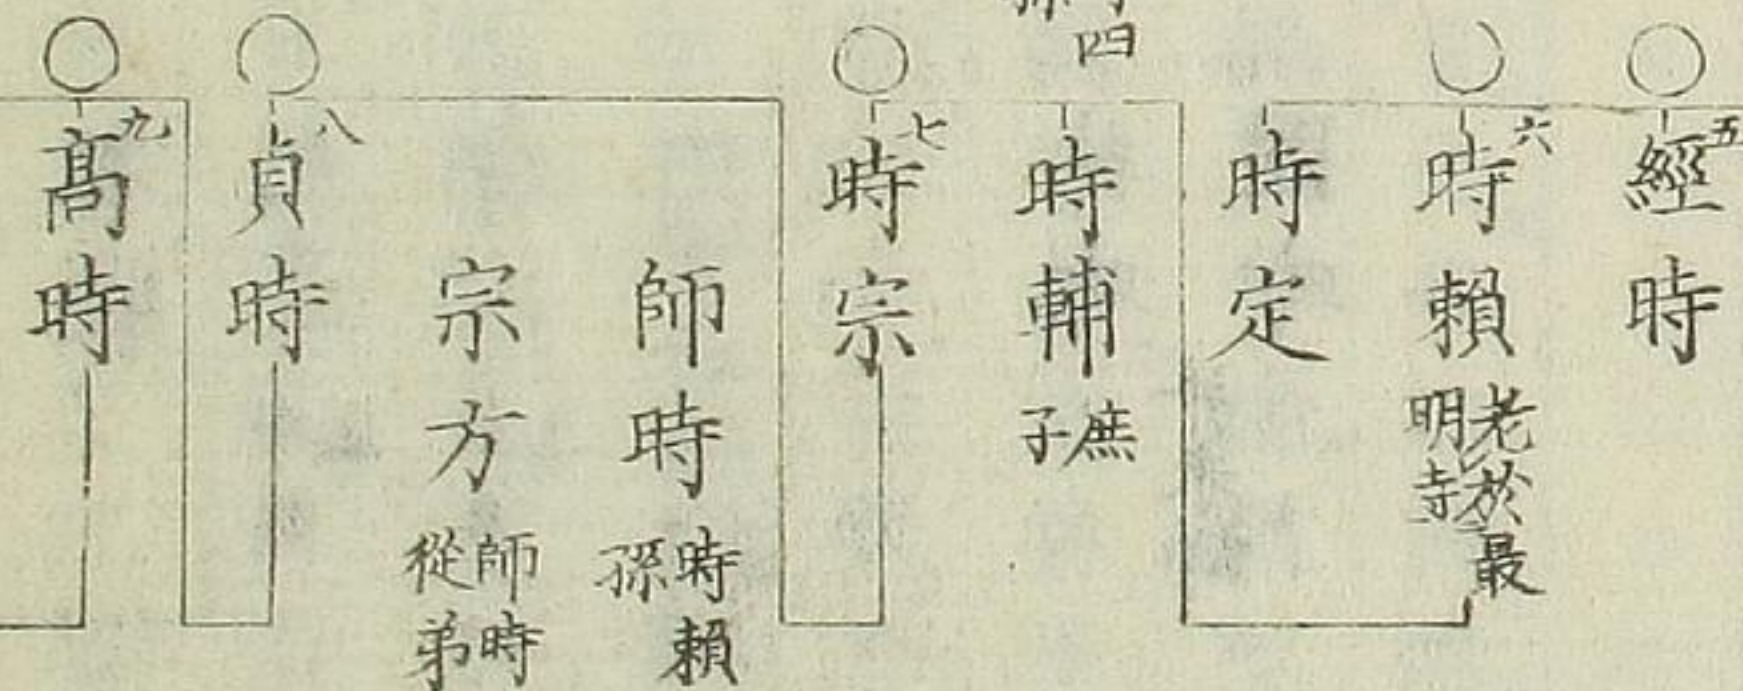 五
經時
六
時頼
老於最
明寺
時定
四
孫
時輔
庶
子
七
時宗
師時
時頼
孫
宗方
師時
從弟
八
貞時
九
髙時